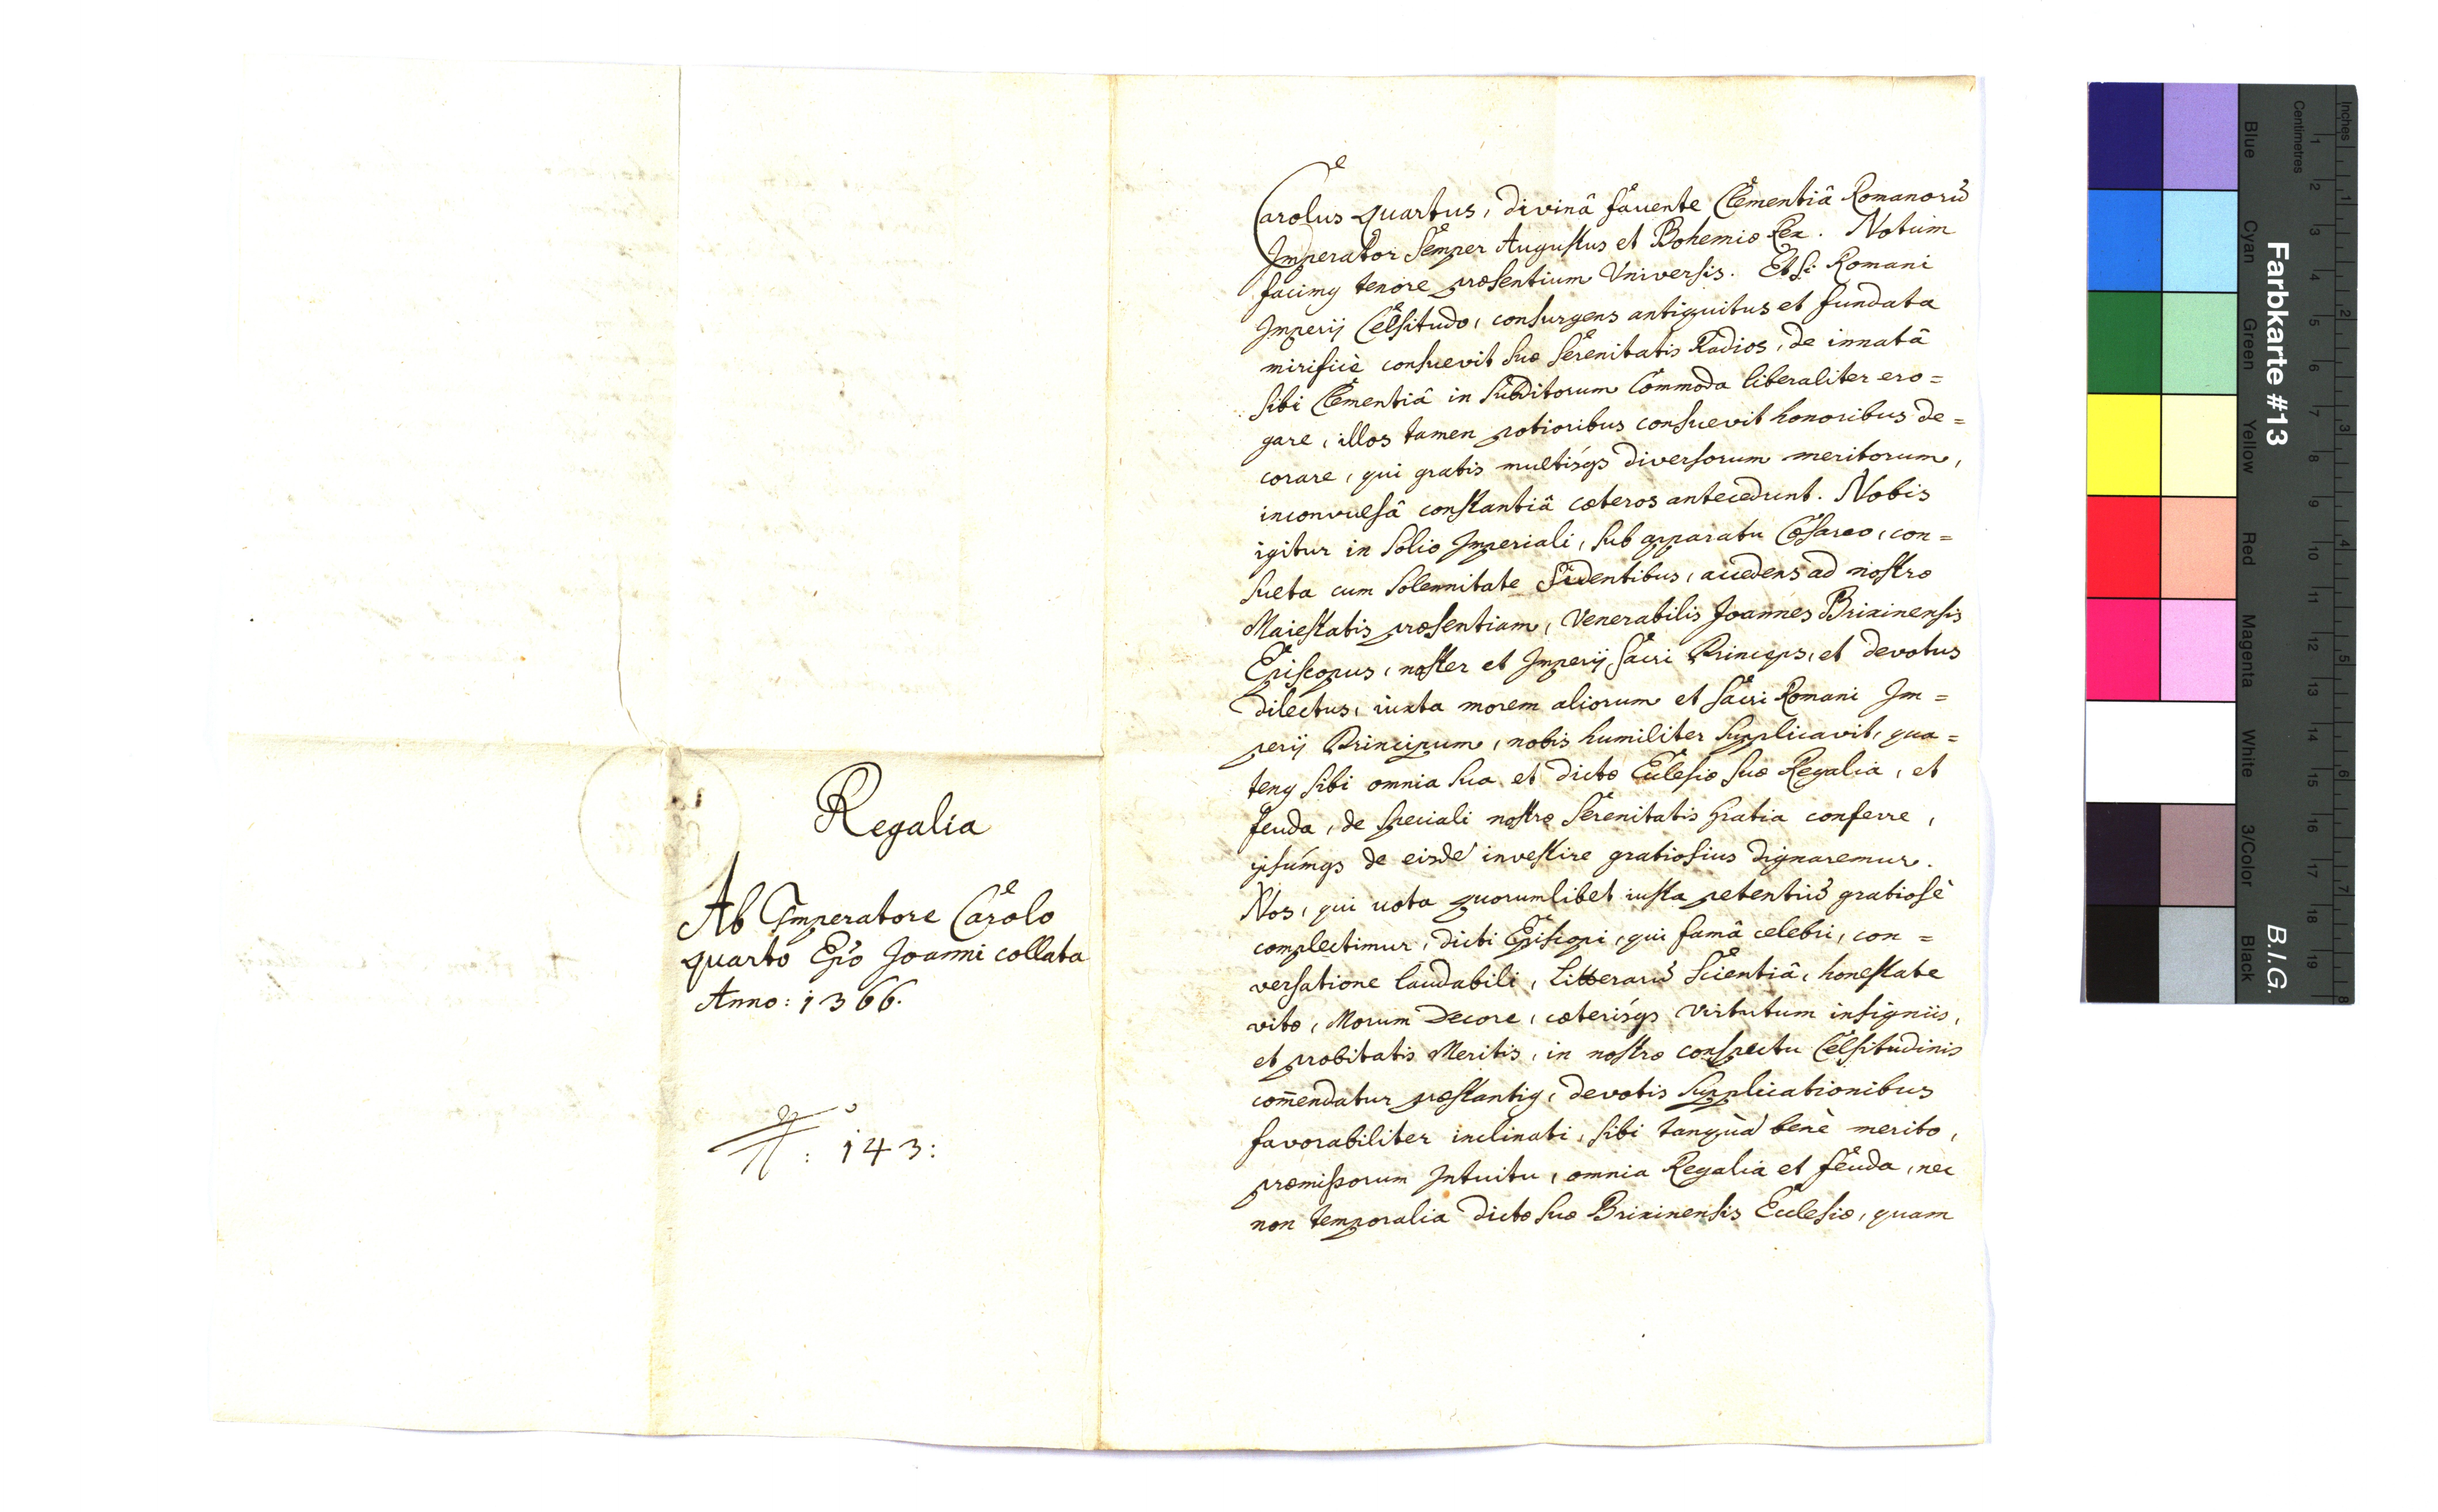 Regalia
Ab Imperatore Carolo
quarto Ep̃o Joanni collata
Anno: 1366.
N: 143:
Carolus quartus, divinâ fauente Clementiâ Romanorũ
Imperator semper Augustus et Bohemiæ Rex. Notum
facimꝰ tenore præsentium Vniversis. Etsi Romani
Imperij Celsitudo, consurgens antiquitus et fundata
mirificè consuevit suæ Serenitatis Radios, de innatâ
sibi Clementiâ in subditorum Commoda liberaliter ero=
gare, illos tamen potioribus consuevit honoribus de=
corare, qui gratis multisqꝫ diversorum meritorum,
inconvulsâ constantiâ cæteros antecedunt. Nobis
igitur in solio Imperiali, sub apparatu Cæsareo, con=
sueta cum solennitate Sidentibus, accedens ad nostræ
Maiestatis præsentiam, Venerabilis Joannes Brixinensis
Episcopus, noster et Imperij sacri Princeps, et devotus
dilectus, iuxta morem aliorum et sacri Romani Im=
perij Principum, nobis humiliter supplicavit, qua=
tenꝰ sibi omnia sua et dictæ Ecclesiæ suæ Regalia, et
feuda, de speciali nostræ Serenitatis gratia conferre,
ipsumqꝫ de eisdẽ investire gratiosius dignaremur.
Nos, qui uota quorumlibet iusta petentiũ gratiosè
complectimur, dicti Episcopi, qui famâ celebri, con=
versatione laudabili, Litterarũ Scientiâ, honestate
vitæ, Morum Decore, cæterisqꝫ virtutum insigniis,
et probitatis Meritis, in nostræ conspectu Celsitudinis
com̄endatur præstantiꝰ, devotis supplicationibus
favorabiliter inclinati, sibi tanquã benè merito,
præmissorum Intuitu, omnia Regalia et feuda, nec
non temporalia dictæ suæ Brixinensis Ecclesiæ, quam
Farbkarte #13
B.I.G.
Inches
Centimetres
1 2 3 4 5 6 7 8
1 2 3 4 5 6 7 8 9 10 11 12 13 14 15 16 17 18 19
Blue
Cyan
Green
Yellow
Red
Magenta
White
3/Color
Black